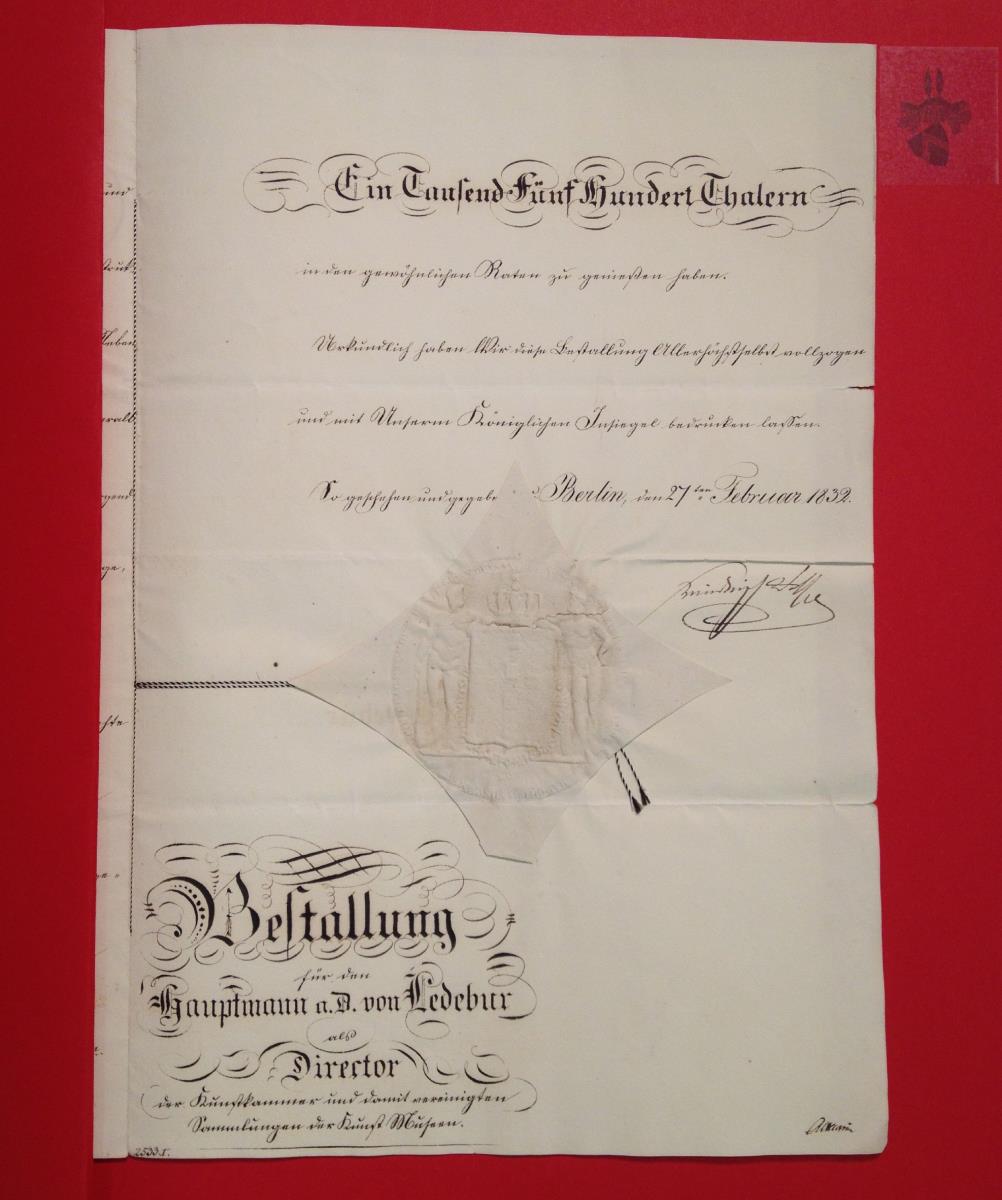 und
struk
Neben
erall
rgend
ge,
chte
Ein Tausend Fünf Hundert Thalern
in den gewöhnlichen Raten zu genießen haben.
Urkundlich haben Wir diese Bestallung Allerhöchstselbst vollzogen
und mit Unserm Königlichen Insiegel bedrucken lassen.
So geschehen und gegebe Berlin, den 27ten Februar 1832.
Bestallung
für den
Hauptmann a.D. von Ledebur
als
Director
der Kunstkammer und damit vereinigten
Sammlungen der Kunst Museen.
2533.I.